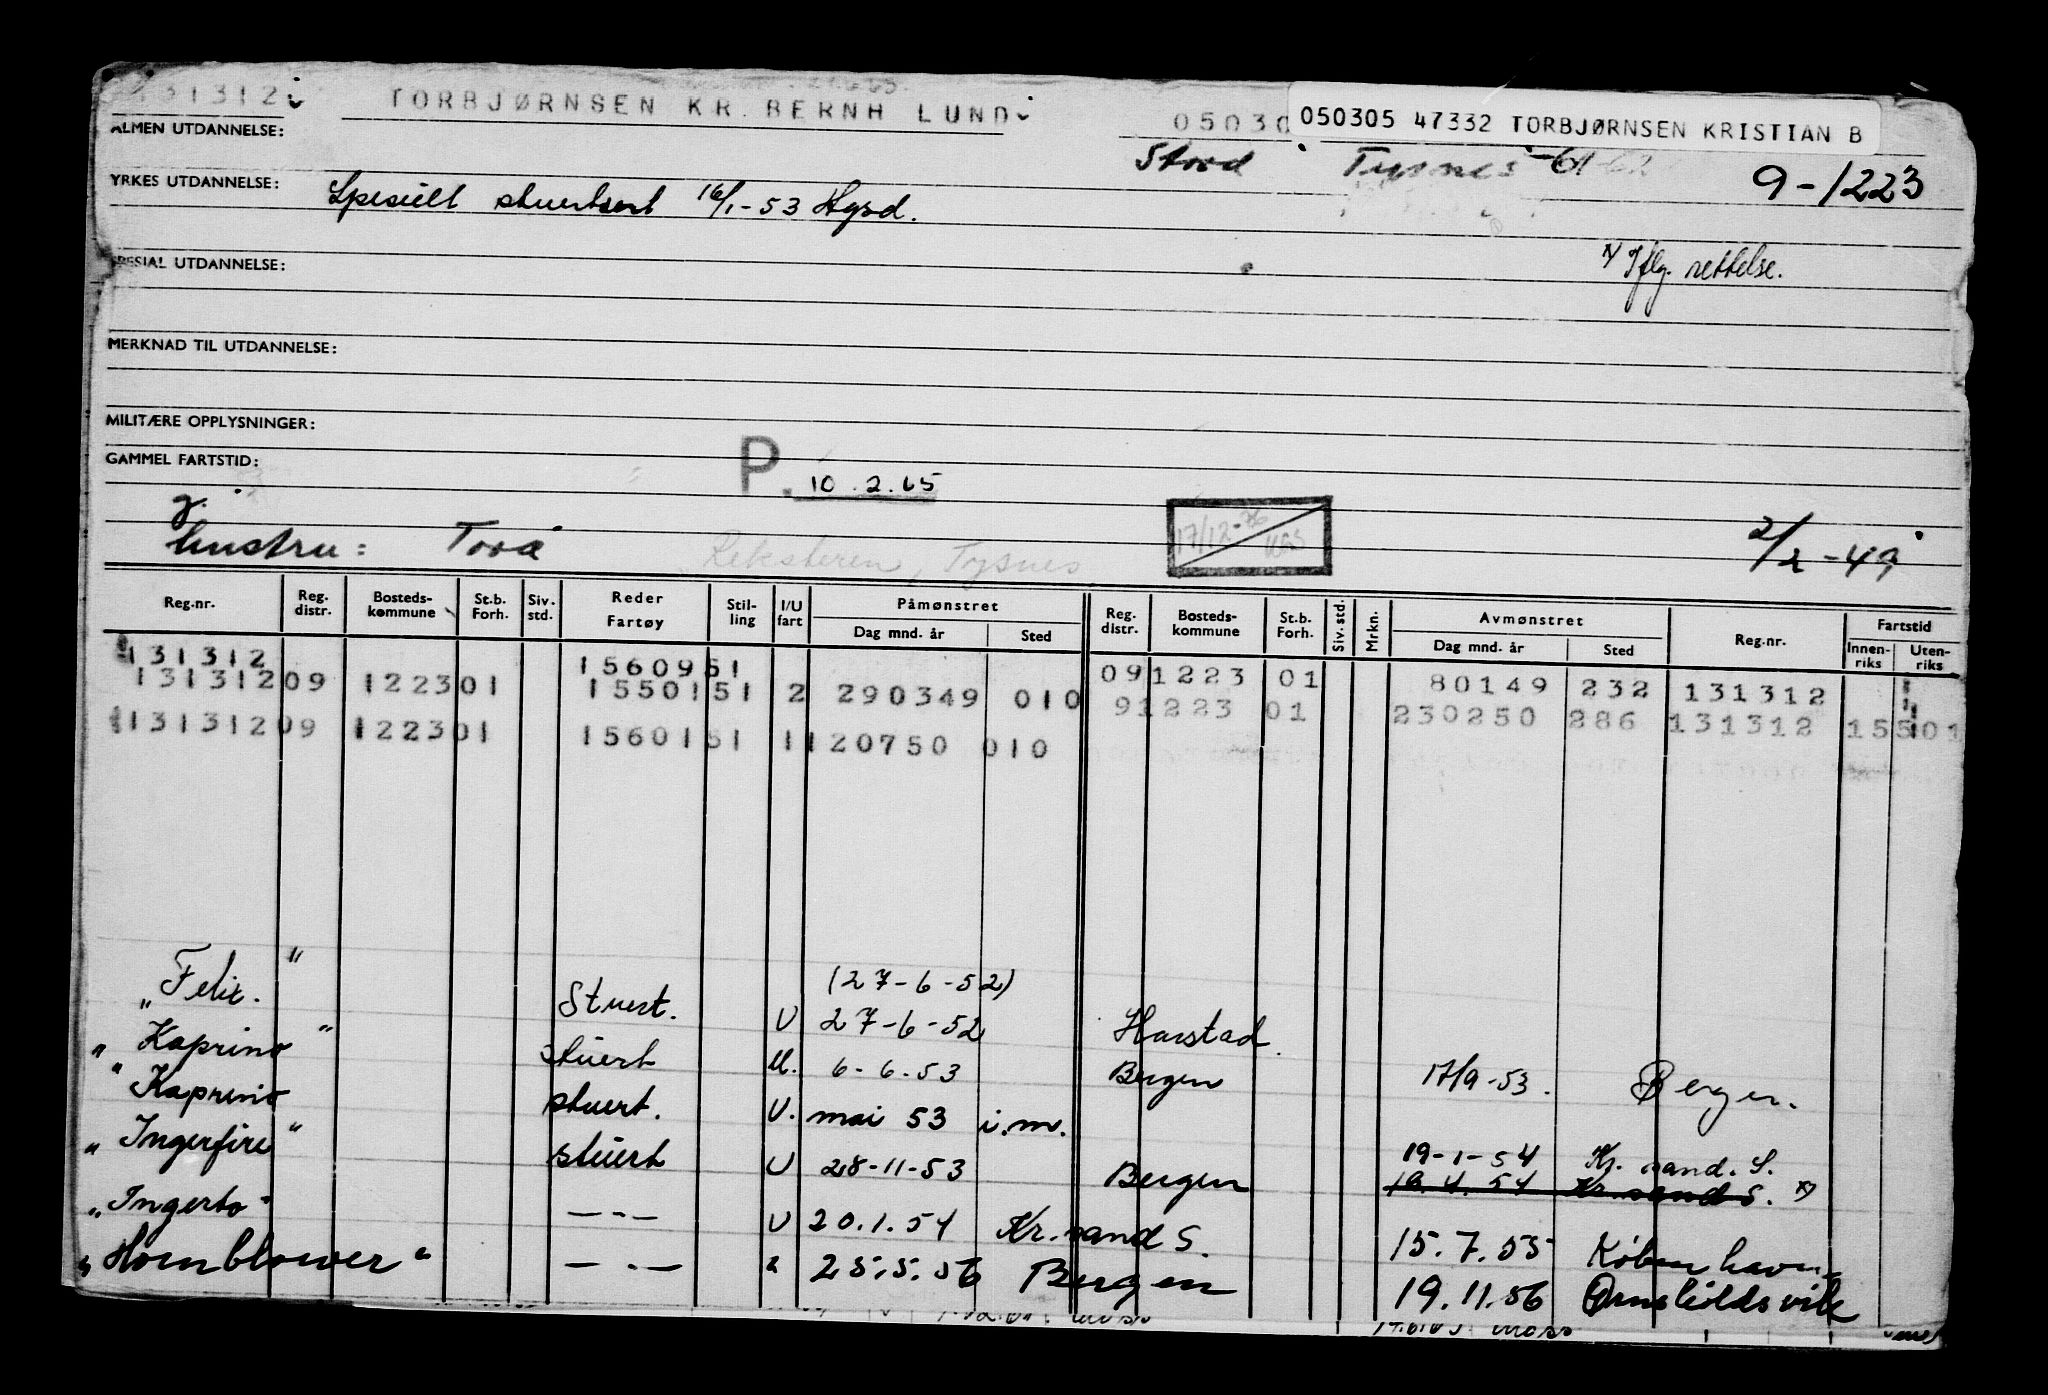 131312
TORBJØRNSEN KR. BERNH LUND
0503
050305 47332 TORBJØRNSEN KRISTIAN B
ALMEN UTDANNELSE:
Stord Tysnes -61
9-1223
YRKES UTDANNELSE: Spesiell stuertsert 16/1-53 Hgsd.
x) Iflg. rettelse.
SPESIAL UTDANNELSE:
MERKNAD TIL UTDANNELSE:
MILITÆRE OPPLYSNINGER:
GAMMEL FARTSTID:
P. 10.2.65
g.
hustru: Tora
Reksteren, Tysnes
17/12-76
2/2-49
Reg.nr. Reg. distr. Bosteds- kommune St.b. Forh. Siv. std. Reder Fartøy Stil- ling I/U fart Påmønstret Dag mnd. år Sted Reg. distr. Bosteds- kommune St.b. Forh. Siv. std. Mrkn. Avmønstret Dag mnd. år Sted Reg.nr. Fartstid Innen- riks Uten- riks
131312 1560951 091223 01 80149 232 131312
131312 09 1223 01 1550151 2 290349 010 91223 01 230250 286 131312 15501
131312 09 1223 01 1560151 1 120750 010
(27-6-52)
"Felix." Stuert. U 27-6-52 Harstad.
"Kaprino" stuert U. 6-6-53 Bergen 17/9-53. Bergen.
"Kaprino stuert. U. mai 53 i.m.
19-1-54 Kr. sand. S.
"Ingerfire" stuert U 28-11-53 Bergen 19.4.54 Kr.sand S. x)
"Ingerto" —"— U 20.1.54 Kr.sand S. 15.7.55 København
"Hornblower" —"— " 25.5.56 Bergen 19.11.56 Ørnskioldsvik